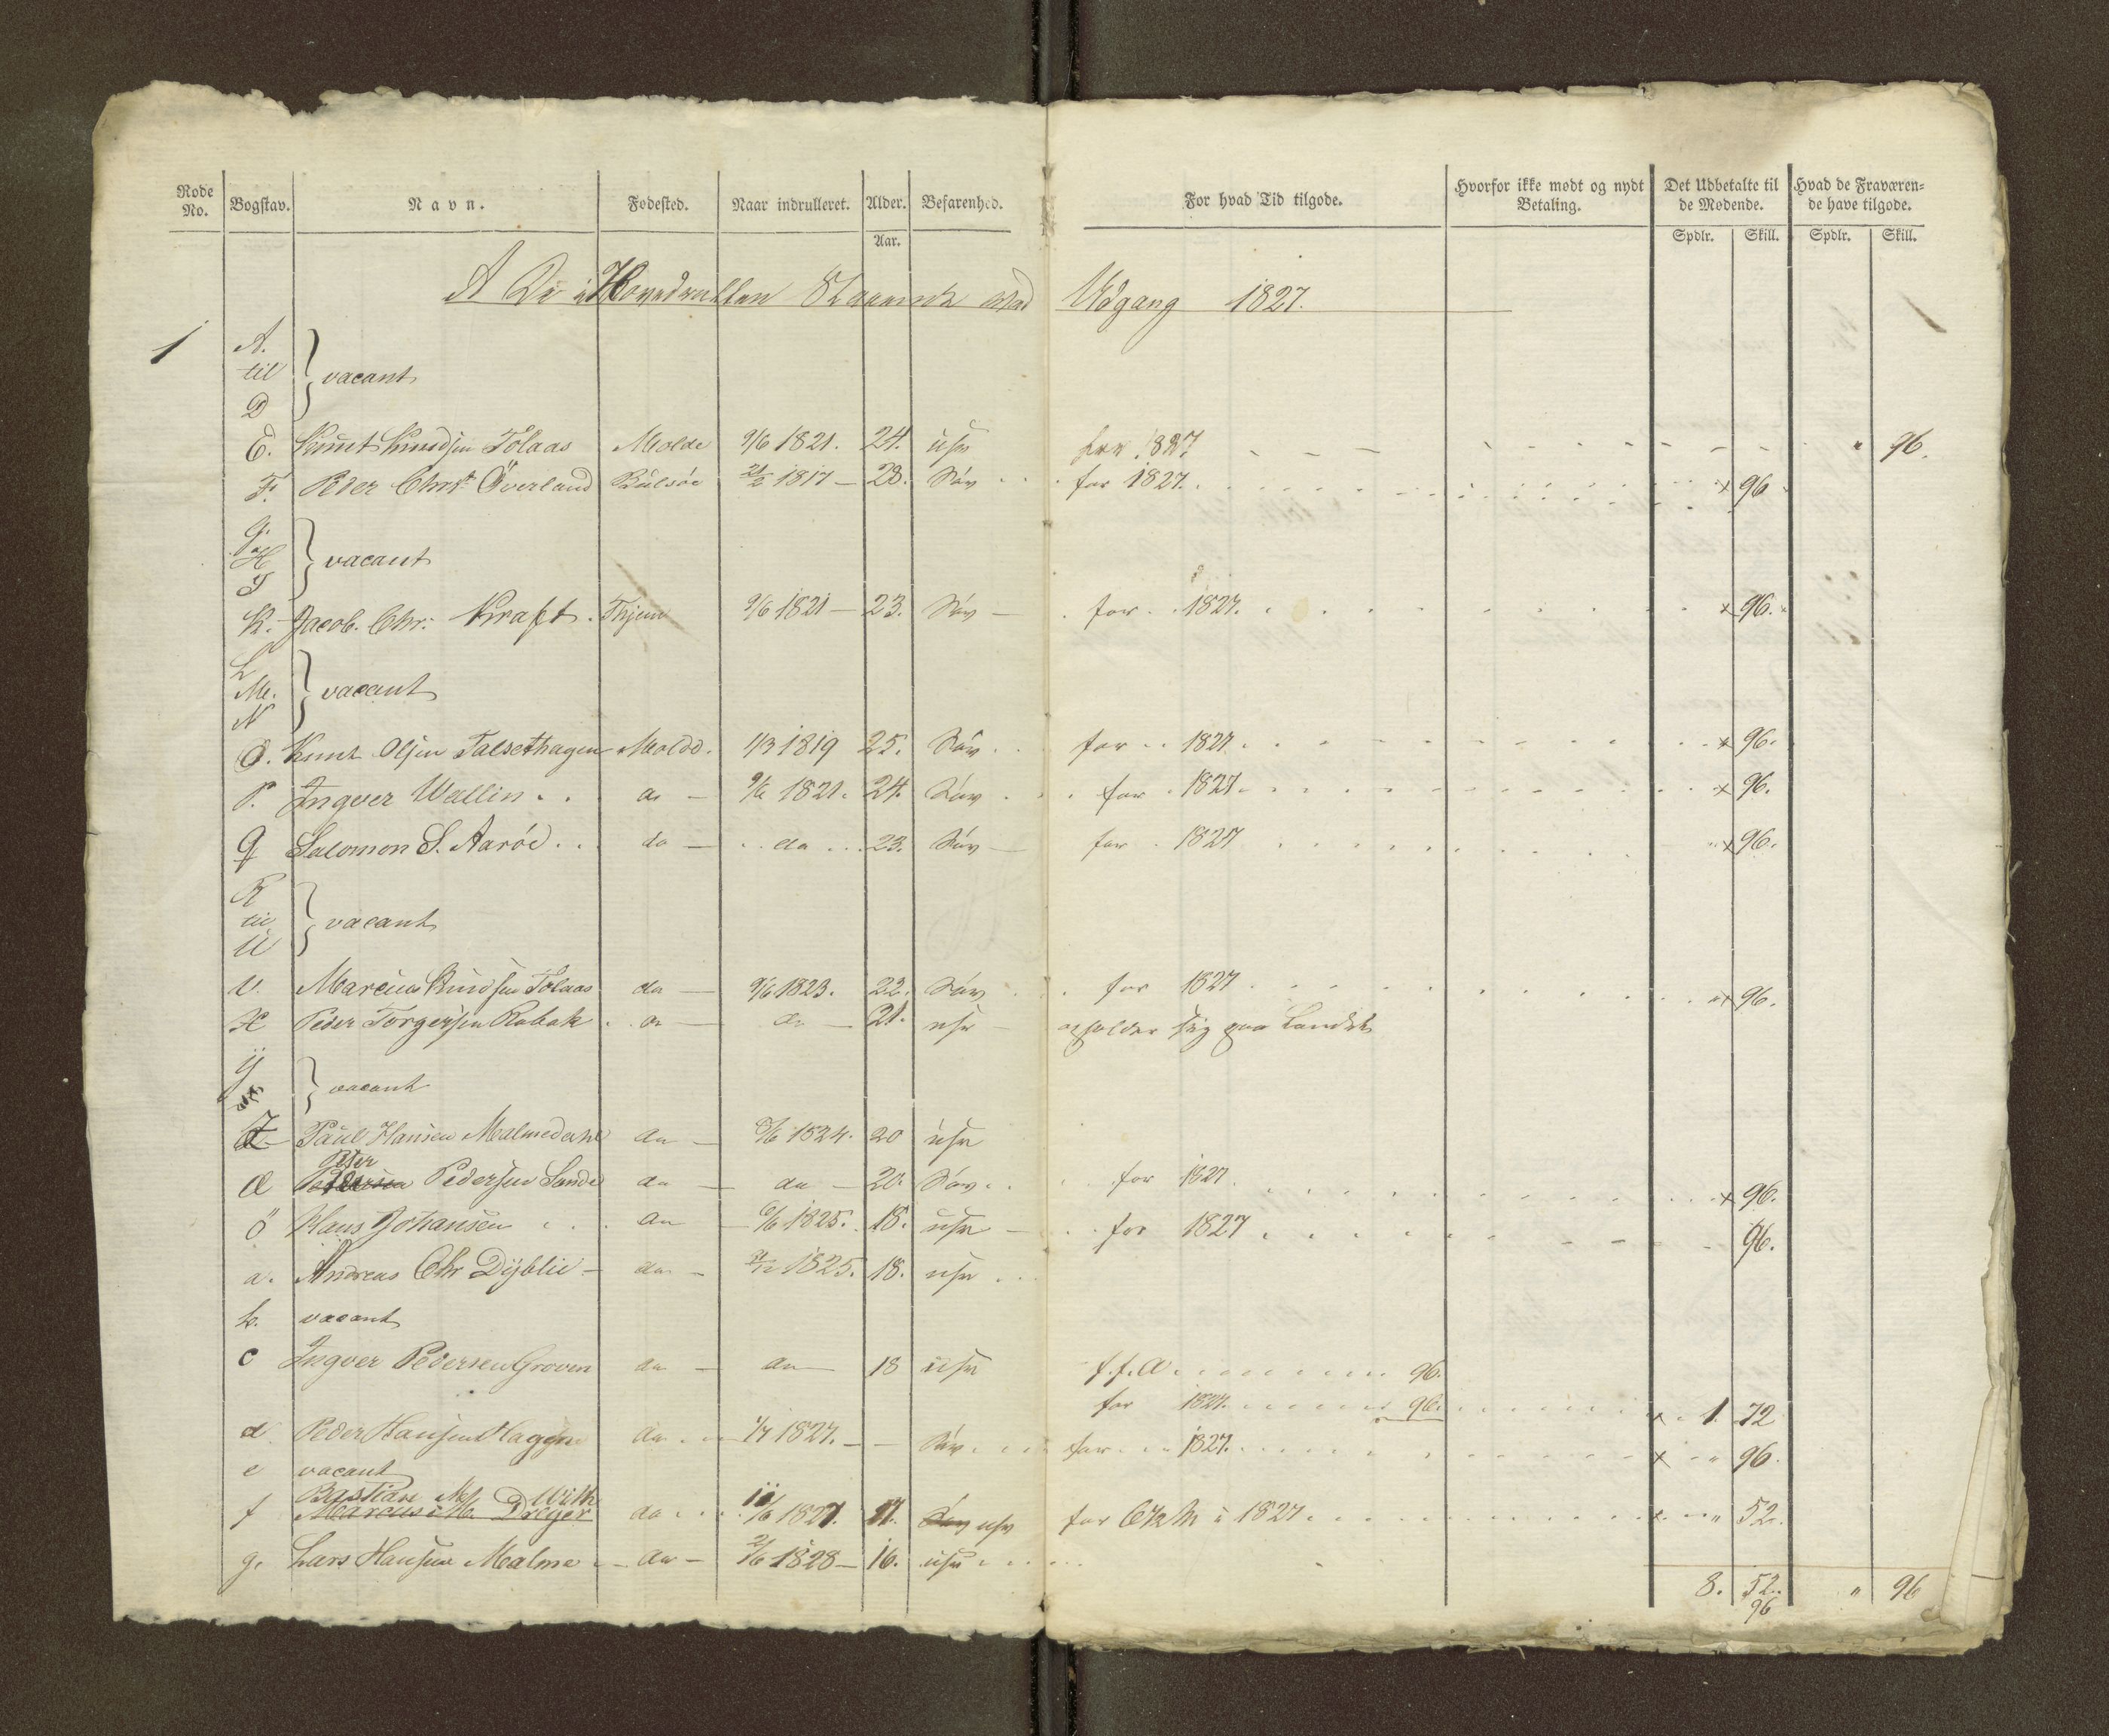 Rode No. Bogstav. Navn. Fødested. Naar indrulleret. Alder. Befarenhed. For hvad Tid tilgode. Hvorfor ikke mødt og nydt Betaling. Det Udbetalte til de Mødende. Hvad de Fraværende have tilgode.
Aar. Spdlr. Skill. Spdlr. Skill.
A De i Hovedrullen Staaende ved Udgang 1827.
1 A.
til } vacant
D
E. Knut Knudsen Tolaas Molde 9/6 1821. 24. ufv for 1827 " 96.
F. Peder Christ. Överland Bulsöe 21/2 1817 - 28. Søv for 1827. x 96
G.
H } vacant
I
K. Jacob. Chr: Kraft. Thjem 9/6 1821 - 23. Søv - for 1827. x 96.
L
M. } vacant
N
O. Knut Olsen Talsethagen Molde. 1/3 1819 25. Søv for 1827. x 96.
P. Ingver Wallin do - 9/6 1821. 24. Søv for 1827. x 96.
Q Salomon S. Aaröe do - do 23. Søv - for 1827 " x 96.
R
til } vacant
U
V. Marcus Knudsen Tolaas do - 9/6 1823. 22. Søv for 1827 " x 96.
X Peder Torgersen Rabak do - do - 21. ufv - opholder sig paa Landet
Y
} vacant
Paul Hansen Malmedahl do - 1824. 20 ufv
Æ Peter Pedersen Sande do - do - 20. Søv for 1827 x 96.
Ö Hans Johansen do - 6/6 1825. 18. ufv - for 1827 96.
a. Andreas Chr Dyblie - do - 1825. 18. ufv
b. vacant
c Ingver Pedersen Groven do - do - 18 ufv f. f. A 96.
for 1827. 96. x 1. 72
d Peder Hansen Hagen do 1/7 1827. - - Søv for 1827. x " 96.
e vacant
Bastian With
f Marcus M. Dreyer do 11/6 1827. 17. Søv ufv for 6 1/2 M i 1827 x " 52.
g. Lars Hansen Malme - do - 2/6 1828 - 16. ufv
8. 52. " 96
96